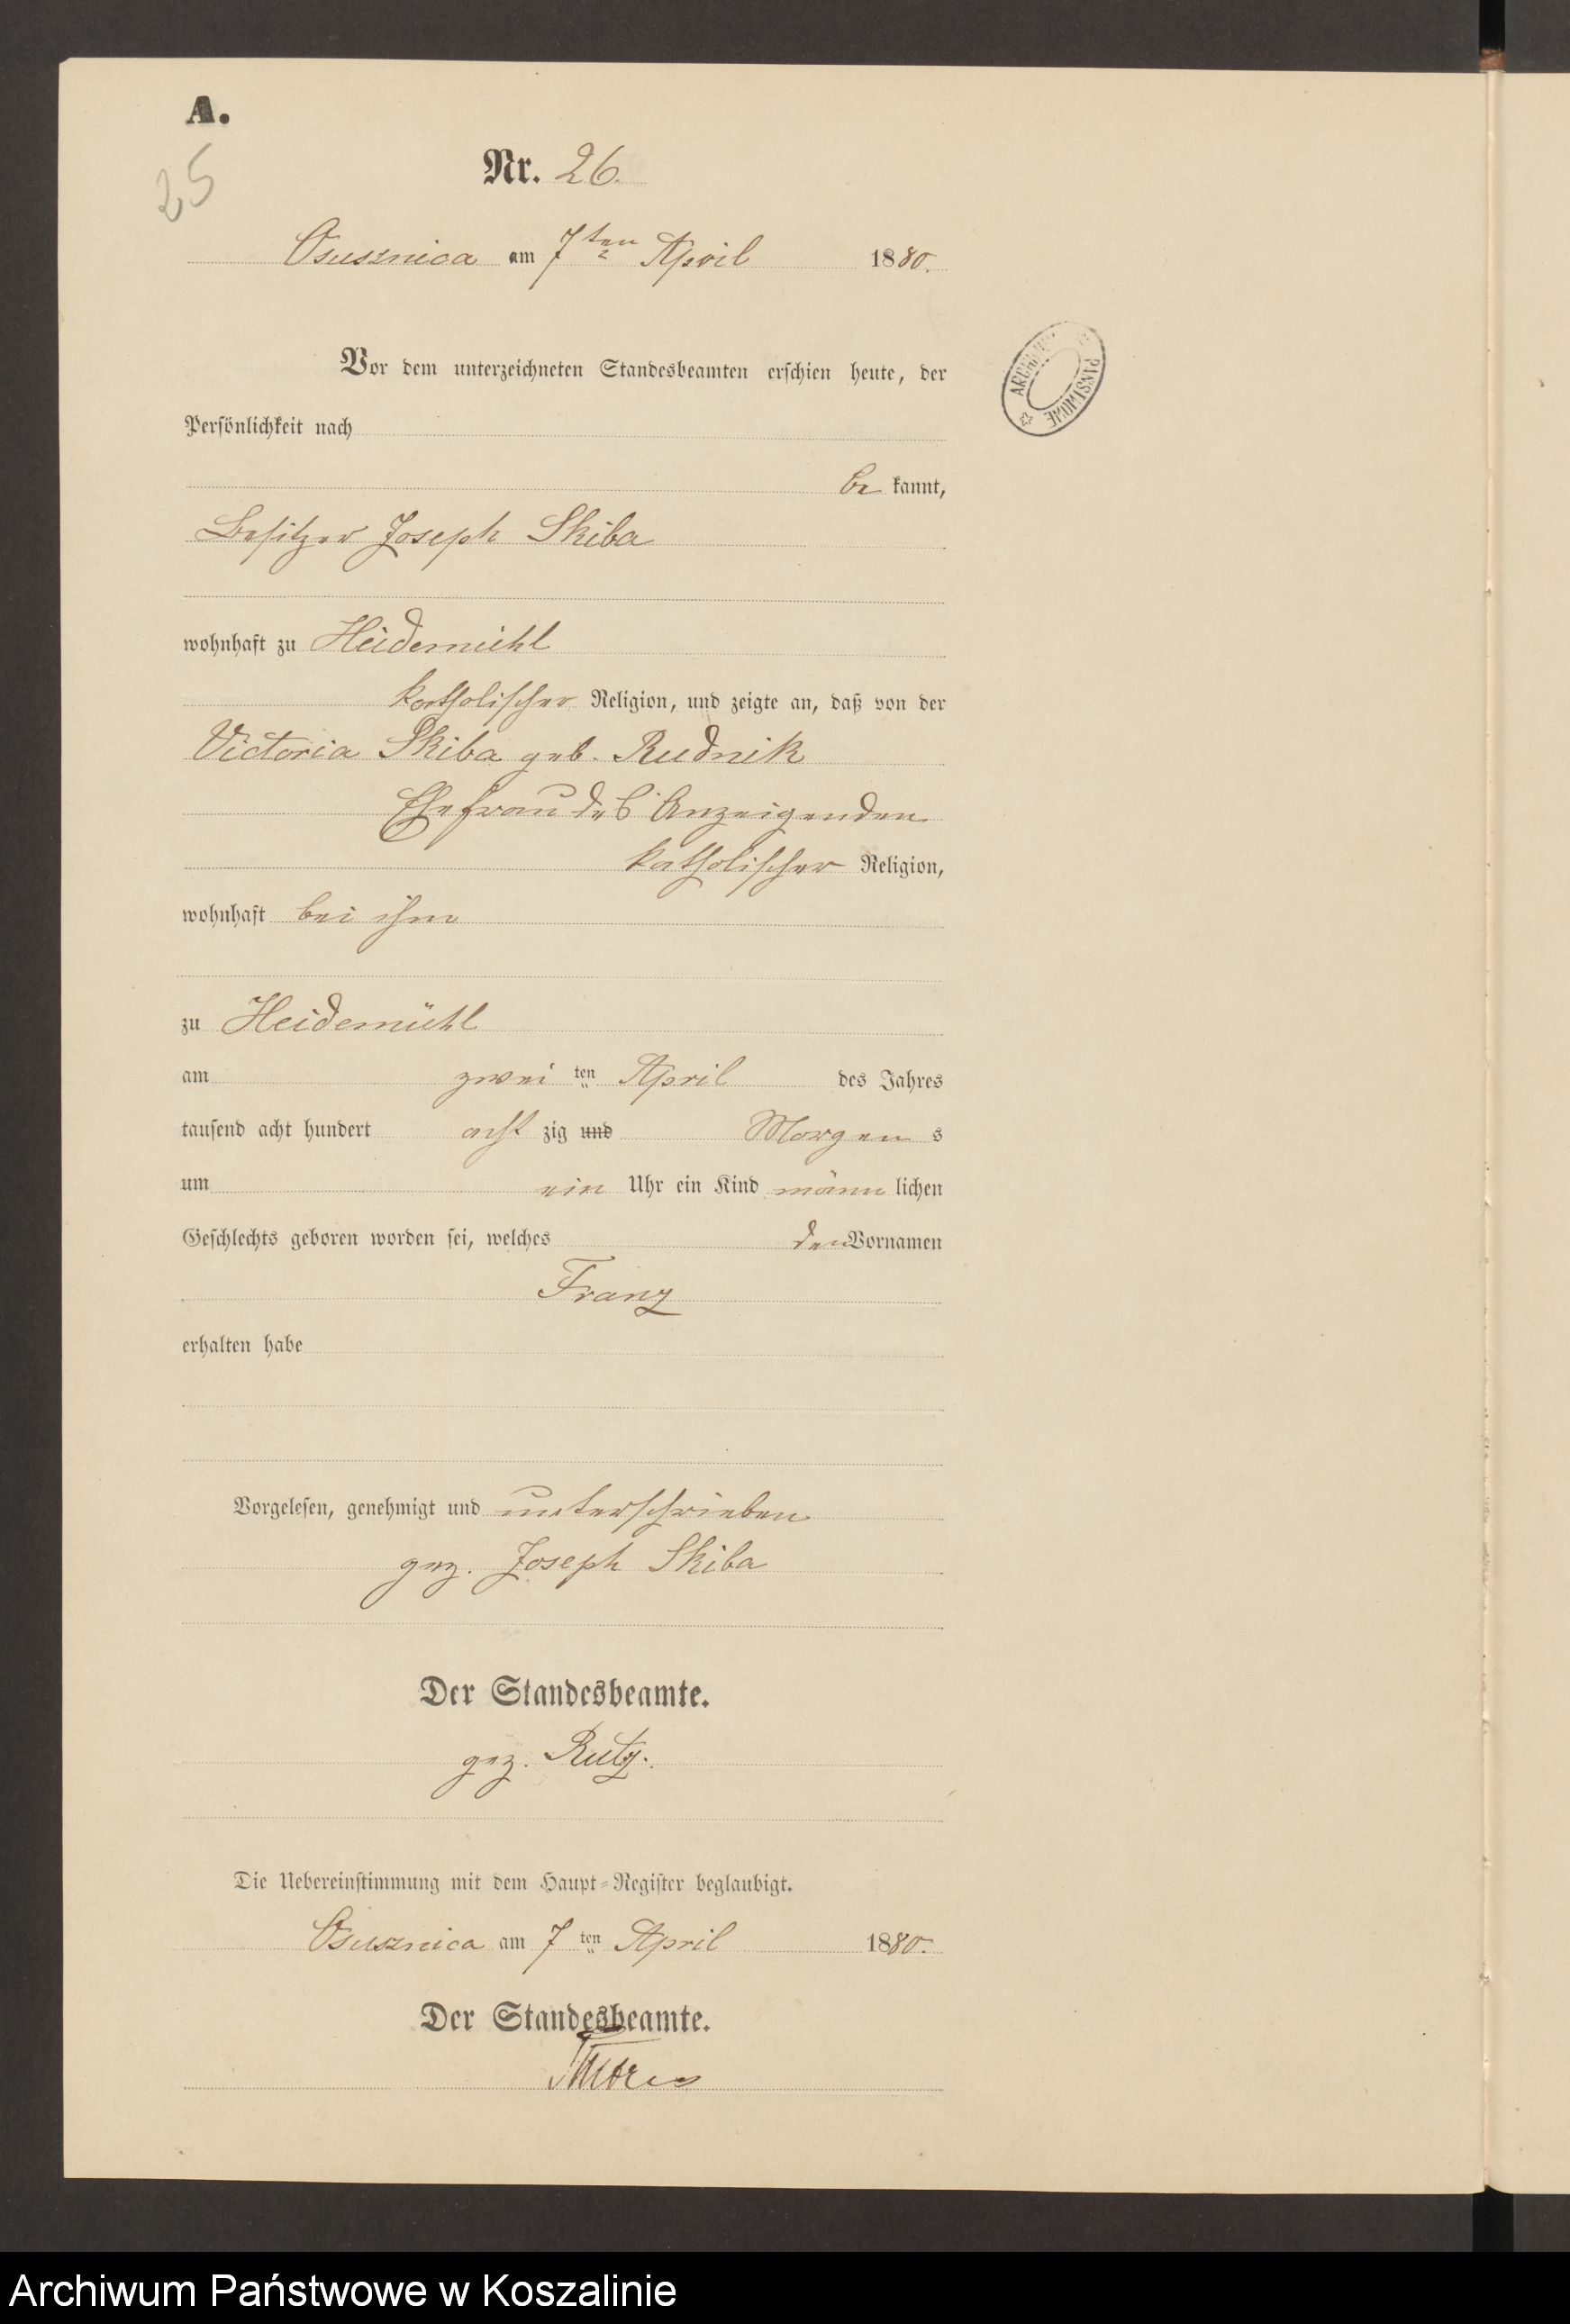 A.
25
Nr. 26.
Osusznica am 7ten April 1880.
Vor dem unterzeichneten Standesbeamten erschien heute, der
ARCHIWUM PAŃSTWOWE
Persönlichkeit nach
be kannt,
Besitzer Joseph Skiba
wohnhaft zu Heidemühl
katholischer Religion, und zeigte an, daß von der
Victoria Skiba geb. Rudnik
Ehefrau des Anzeigenden
katholischer Religion,
wohnhaft bei ihm
zu Heidemühl
am zwei ten April des Jahres
tausend acht hundert acht zig und Morgen s
um ein Uhr ein Kind männ lichen
Geschlechts geboren worden sei, welches den Vornamen
Franz
erhalten habe
Vorgelesen, genehmigt und unterschrieben
gez. Joseph Skiba
Der Standesbeamte.
gez. Rutz.
Die Uebereinstimmung mit dem Haupt-Register beglaubigt.
Osusznica am 7 ten April 1880.
Der Standesbeamte.
Archiwum Państwowe w Koszalinie